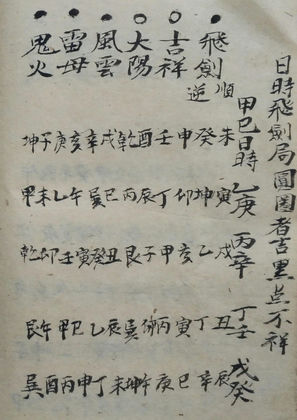 日時飛劍局圓圈者吉黑点不祥
甲巳日時 乙庚 丙辛 丁壬 戊癸
飛劍 順逆
吉祥
大陽
風雲
雷母
鬼火
未癸申壬酉乾戌辛亥庚子坤
寅坤卯丁辰丙巳巽午乙未甲
戌乙亥甲子艮丑癸寅壬卯乾
丑丁寅丙 巽辰乙巳甲午艮
辰辛巳庚午坤未丁申丙酉巽